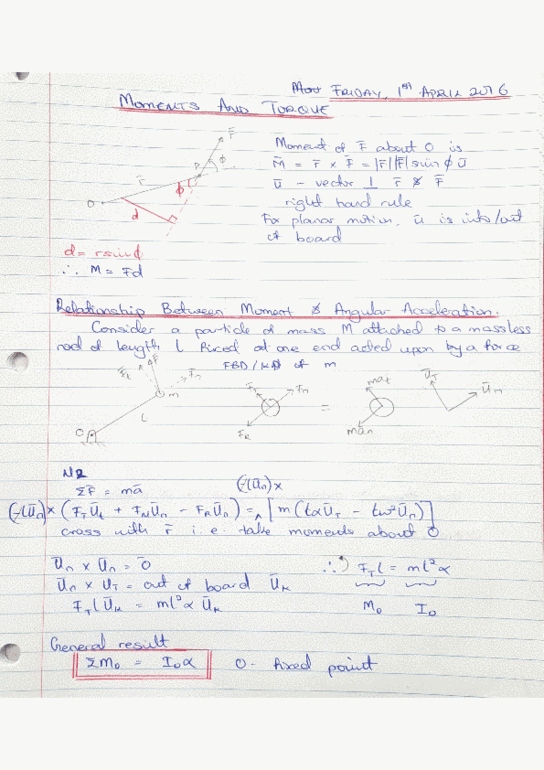 FRIDAY, 1st APRIL 2016
MOMENTS AND TORQUE
Moment of F̄ about O is
M̄ = r̄ × F̄ = |r̄||F̄| sin ϕ ū
ū - vector ⊥ r̄ & F̄
right hand rule
For planar motion, ū is into/out
of board
F̄
P
ϕ
r̄
ϕ
O
d
d = r sin ϕ
∴ M = Fd
Relationship Between Moment & Angular Acceleration.
Consider a particle of mass M attached to a massless
rod of length L fixed at one end acted upon by a force
FBD/KD of m
F̄
m
L
O
F_R
=
ma_t
ma_n
ū_T
ū_n
N2
ΣF̄ = mā
(-lū_n)×
(-lū_n)× (F_T ū_t + F_N ū_n - F_R ū_n) = [m(lαū_T - lω²ū_n)]
cross with r̄ i.e. take moments about O
ū_n × ū_n = 0̄
ū_n × ū_T = out of board ū_k
F_T l ū_k = ml²α ū_k
∴ F_T l = ml²α
M_o I_o
General result
ΣM_o = I_o α
O - fixed point